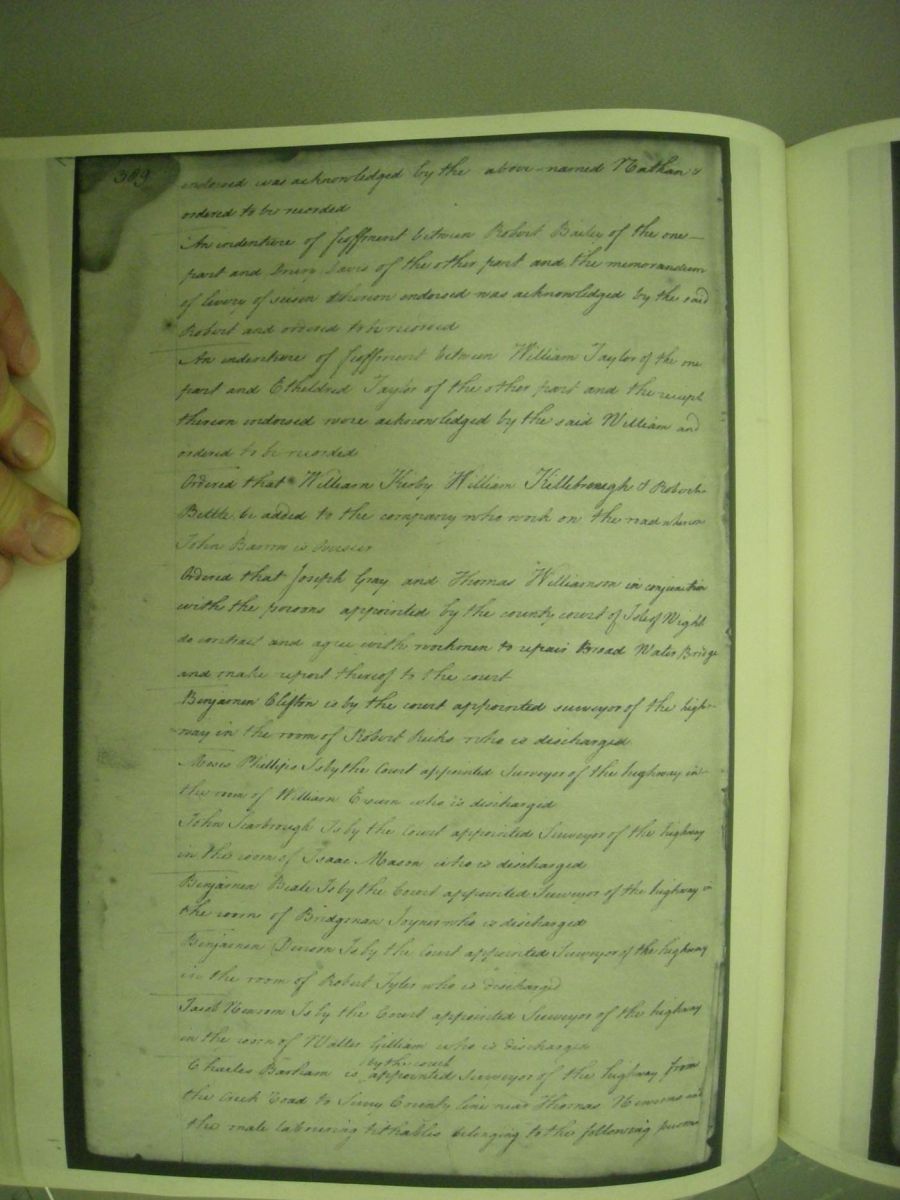 389
endorsed was acknowledged by the above-named Nathan &
ordered to be recorded
An indenture of feoffment between Robert Bailey of the one
part and Drury Davis of the other part and the memorandum
of livery of seisin thereon endorsed was acknowledged by the said
Robert and ordered to be recorded
An indenture of feoffment between William Taylor of the one
part and Etheldred Taylor of the other part and the receipt
thereon endorsed were acknowledged by the said William and
ordered to be recorded
Ordered that William Kirby William Killebrough & Robert
be added to the company who work on the road whereon
John Barrow is Overseer
Ordered that Joseph Gray and Thomas Williamson in conjunction
with the persons appointed by the county court of Isle of Wight
do contract and agree with workmen to repair Broad Water Bridge
and make report thereof to the court
Benjamin Clifton is by the court appointed surveyor of the high-
way in the room of Robert Ricks who is discharged
Moses Phillips Is by the Court appointed Surveyor of the highway in
the room of William who is discharged
John Scarbrough Is by the Court appointed Surveyor of the highway
in the room of Isaac Mason who is discharged
Benjamin Beale Is by the Court appointed Surveyor of the highway in
the room of Bridgman Joyner who is discharged
Benjamin Denson Is by the Court appointed Surveyor of the highway
in the room of Robert Tyler who is discharged
Jacob Newsom Is by the Court appointed Surveyor of the highway
in the room of Walter Gilliam who is discharged
by the court
Charles Barham is appointed Surveyor of the highway from
the Creek Road to Surry County line near Thomas Newsoms and
the male labouring tithables belonging to the following persons